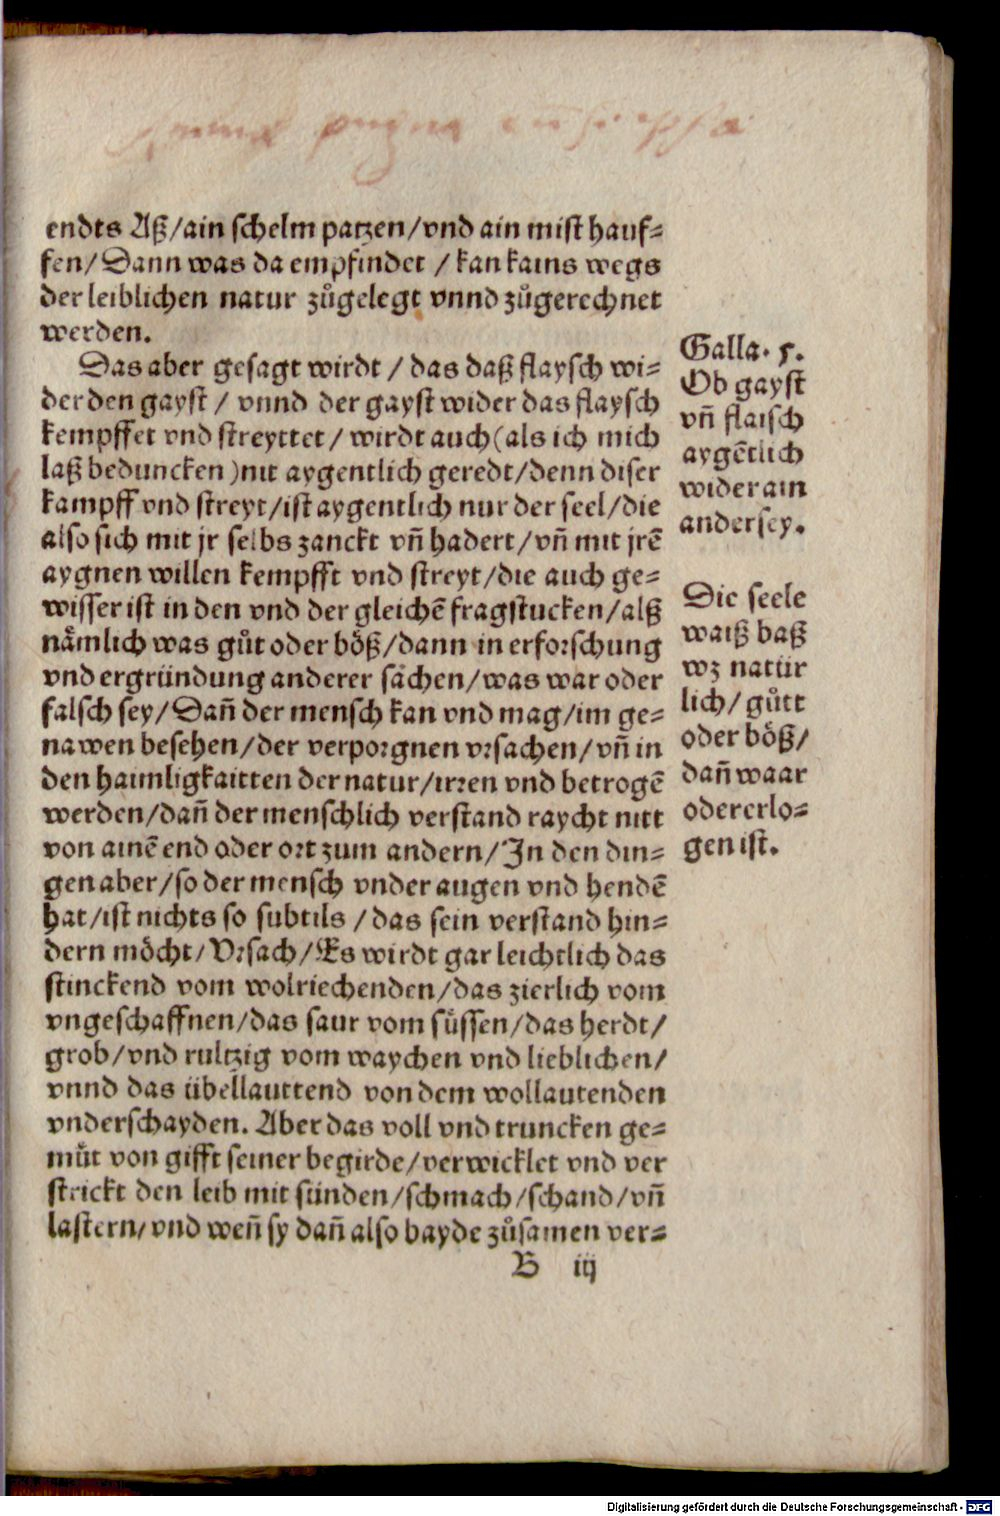 endts Aß/ain schelm patzen/vnd ain mist hauf-
fen/Dann was da empfindet / kan kains wegs
der leiblichen natur zůgelegt vnnd zůgerechnet
werden.
Das aber gesagt wirdt / das daß flaysch wi-
der den gayst / vnnd der gayst wider das flaysch
kempffet vnd streyttet/ wirdt auch (als ich mich
laß beduncken) nit aygentlich geredt/denn diser
kampff vnd streyt/ist aygentlich nur der seel/die
also sich mit jr selbs zanckt vñ hadert/vñ mit jrē
aygnen willen kempfft vnd streyt/die auch ge-
wisser ist in den vnd der gleichē fragstucken/alß
nämlich was gůt oder böß/dann in erforschung
vnd ergründung anderer sächen/was war oder
falsch sey/Dañ der mensch kan vnd mag/im ge-
nawen besehen/der verporgnen vrsachen/vñ in
den haimligkaitten der natur/irren vnd betrogē
werden/dañ der menschlich verstand raycht nitt
von ainē end oder ort zum andern/In den din-
gen aber/so der mensch vnder augen vnd hendē
hat/ist nichts so subtils /das sein verstand hin-
dern möcht/Vrsach/Es wirdt gar leichtlich das
stinckend vom wolriechenden/das zierlich vom
vngeschaffnen/das saur vom süssen/das herdt/
grob/vnd rultzig vom waychen vnd lieblichen/
vnnd das übellauttend von dem wollautenden
vnderschayden. Aber das voll vnd truncken ge-
můt von gifft seiner begirde/verwicklet vnd ver
strickt den leib mit sünden/schmach/schand/vñ
lastern/vnd weñ sy dañ also bayde zůsamen ver-
B iij
Galla. 5.
Ob gayst
vñ flaisch
aygētlich
wider ain
ander sey.
Die seele
waiß baß
wz natür
lich/ gůtt
oder böß/
dañ waar
oder erlo-
gen ist.
Digitalisierung gefördert durch die Deutsche Forschungsgemeinschaft - DFG